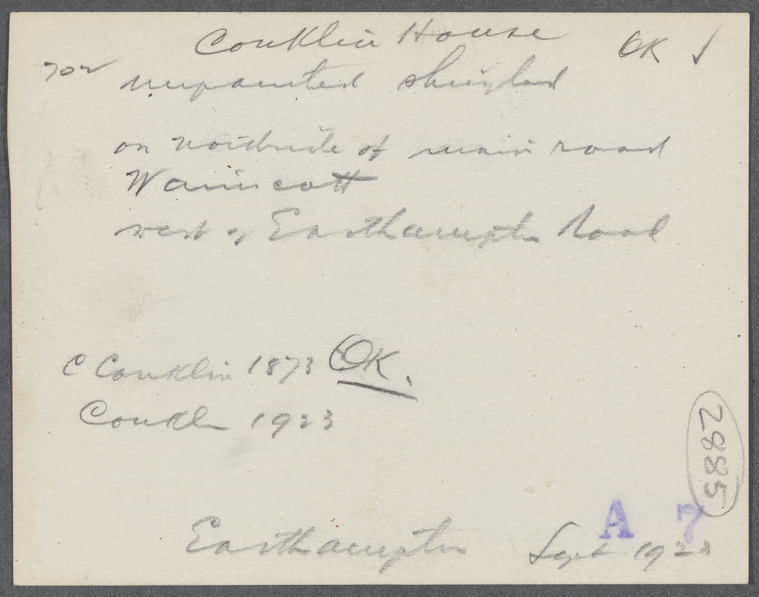 Conklin House OK ✓
unpainted shingled
on northside of main road
Wainscott
west of Easthampton Road
C Conklin 1873 OK.
Conkl 1923
2885
A 7
Easthampton Sept 1923